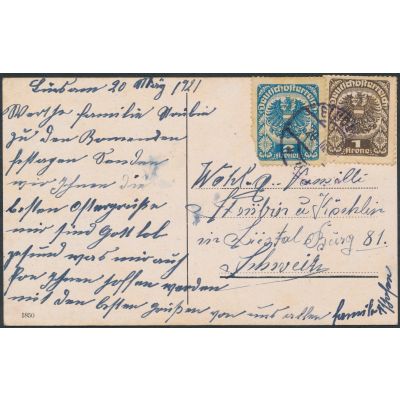 20 März 1921
Werthe familie
zu den kommenden
festagen Senden
wir Ihnen die
besten Ostergrüße
wir sind Gott lob
gesund was wir auch
von Ihnen hoffen werden
mit den besten grüßen von uns allen familie
Deutschösterreich
2
Krone
Deutschösterreich
1
Krone
Wohlg. Familli
u
in Liestal Burg 81.
Schweiz
1850